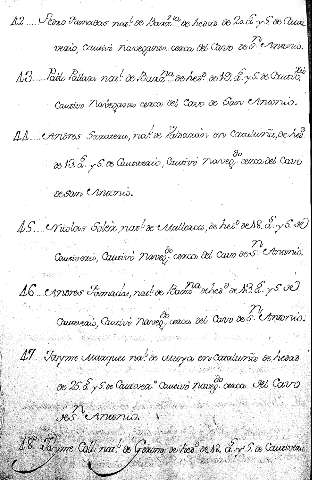 42... Pedro Famadas nat.l de Barz.na de hedad de 20 a.s y 5 de Cau
tiverio, Cautivó Navegando cerca del Cavo de S.n Antonio.
43... Pablo nat.l de Barz.na de hed.d de 19 a.s y 5 de Cautiv.rio
Cautivo Navegando cerca del Cavo de San Antonio.
44... Andres nat.l de en Cataluña, de hed.d
de 13 a.s y 5 de Cautiverio, Cautivó Naveg.do cerca del Cavo
de San Antonio.
45... Nicolas Soler nat.l de Mallorca, de hed.d de 18 a.s y 5 de
Cautiverio, Cautivó Naveg.do cerca del Cavo de S.n Antonio.
46... Andres Famadas, nat.l de Barz.na de hed.d de 13 a.s y 5 de
Cautiverio, Cautivó Naveg.do cerca del Cavo de S.n Antonio.
47... Jayme Marques nat.l de en Cataluña de hedad
de 25 a.s y 5 de Cautiver.o Cautivó Naveg.do cerca del Cavo
de S.n Antonio.
48... Jayme Coll nat.l de Gerona, de hed.d de 12 a.s y 5 de Cautiverio